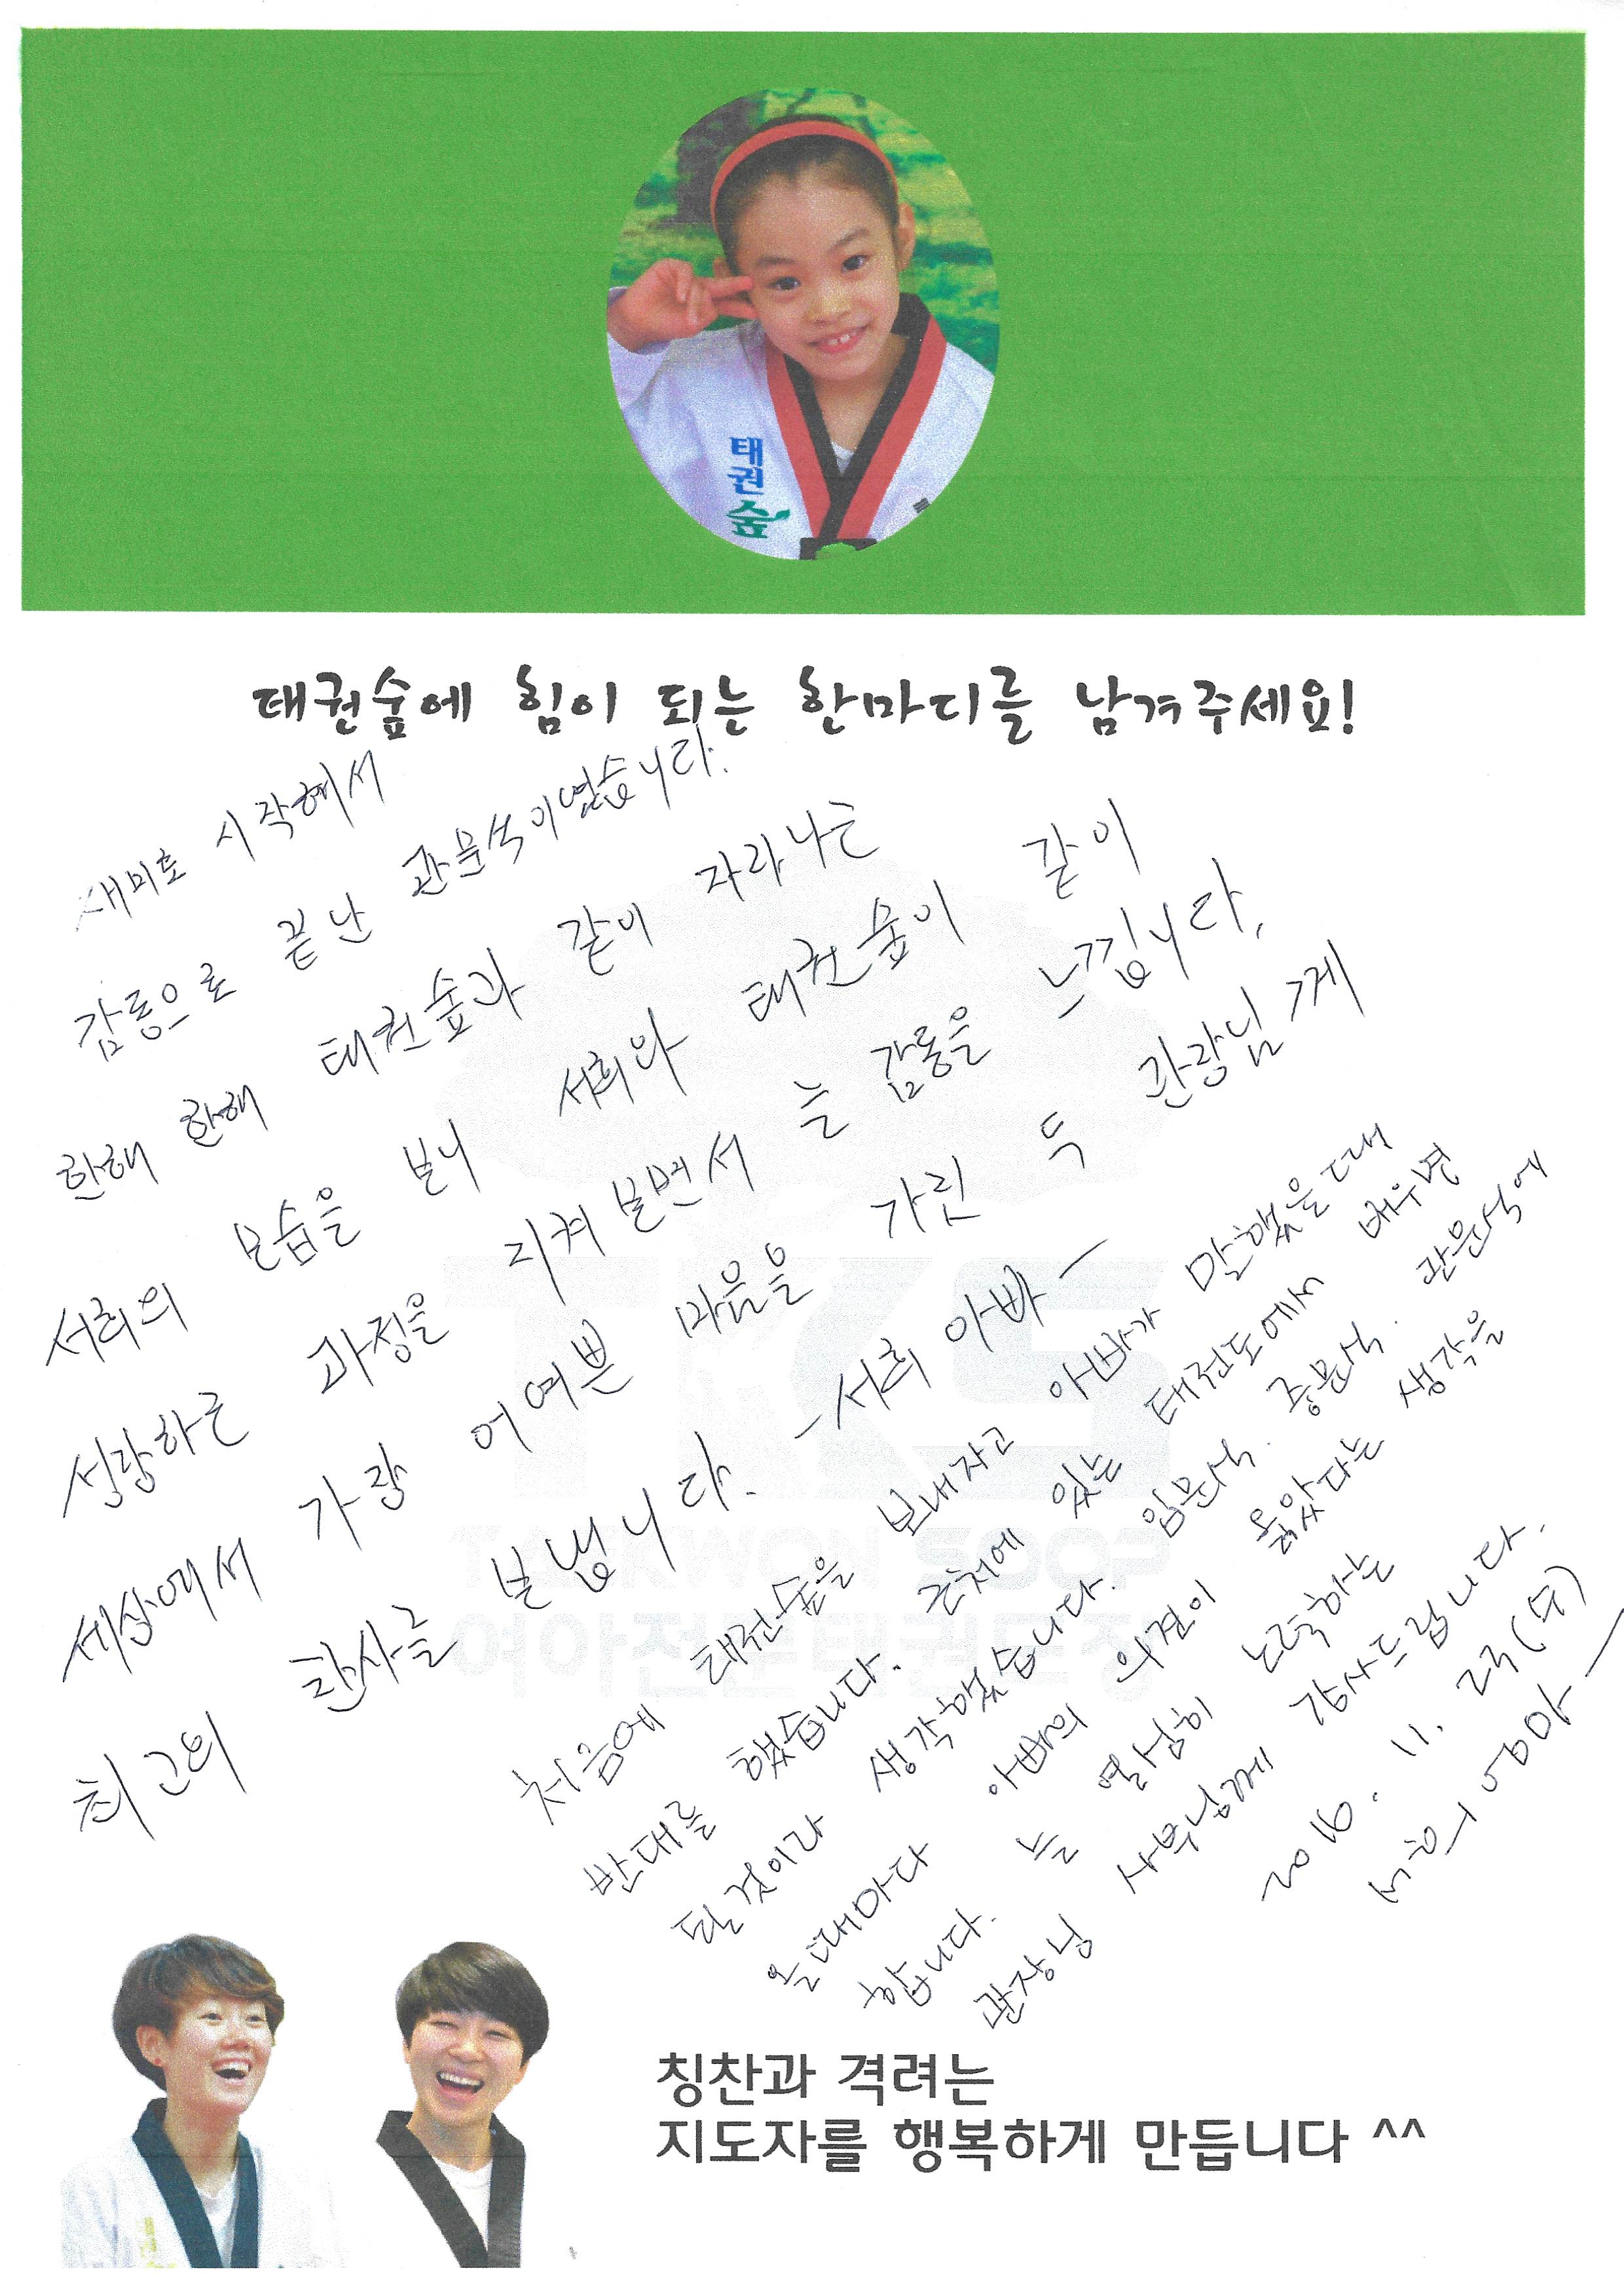 태권숲
태권숲에 힘이 되는 한마디를 남겨주세요!
재미로 시작해서
감동으로 끝난 관문식이였습니다.
한해 한해 태권숲과 같이 자라나는
서희의 모습을 보니 서희와 태권숲이 같이
성장하는 과정을 지켜보면서 늘 감동을 느낍니다.
세상에서 가장 어여쁜 마음을 가진 두 관장님께
최고의 찬사를 보냅니다. - 서희 아빠 -
처음에 태권숲을 보내자고 아빠가 말했을때
반대를 했습니다. 근처에 있는 태권도에서 배우면
될것이라 생각했습니다. 입문식. 중문식. 관문식에
올때마다 아빠의 의견이 옳았다는 생각을
합니다. 늘 열심히 노력하는
관장님 사부님께 감사드립니다.
2016. 11. 23(수)
서희 엄마 -
TKS
TAEKWON SOOP
여아전문태권도장
칭찬과 격려는
지도자를 행복하게 만듭니다 ^^